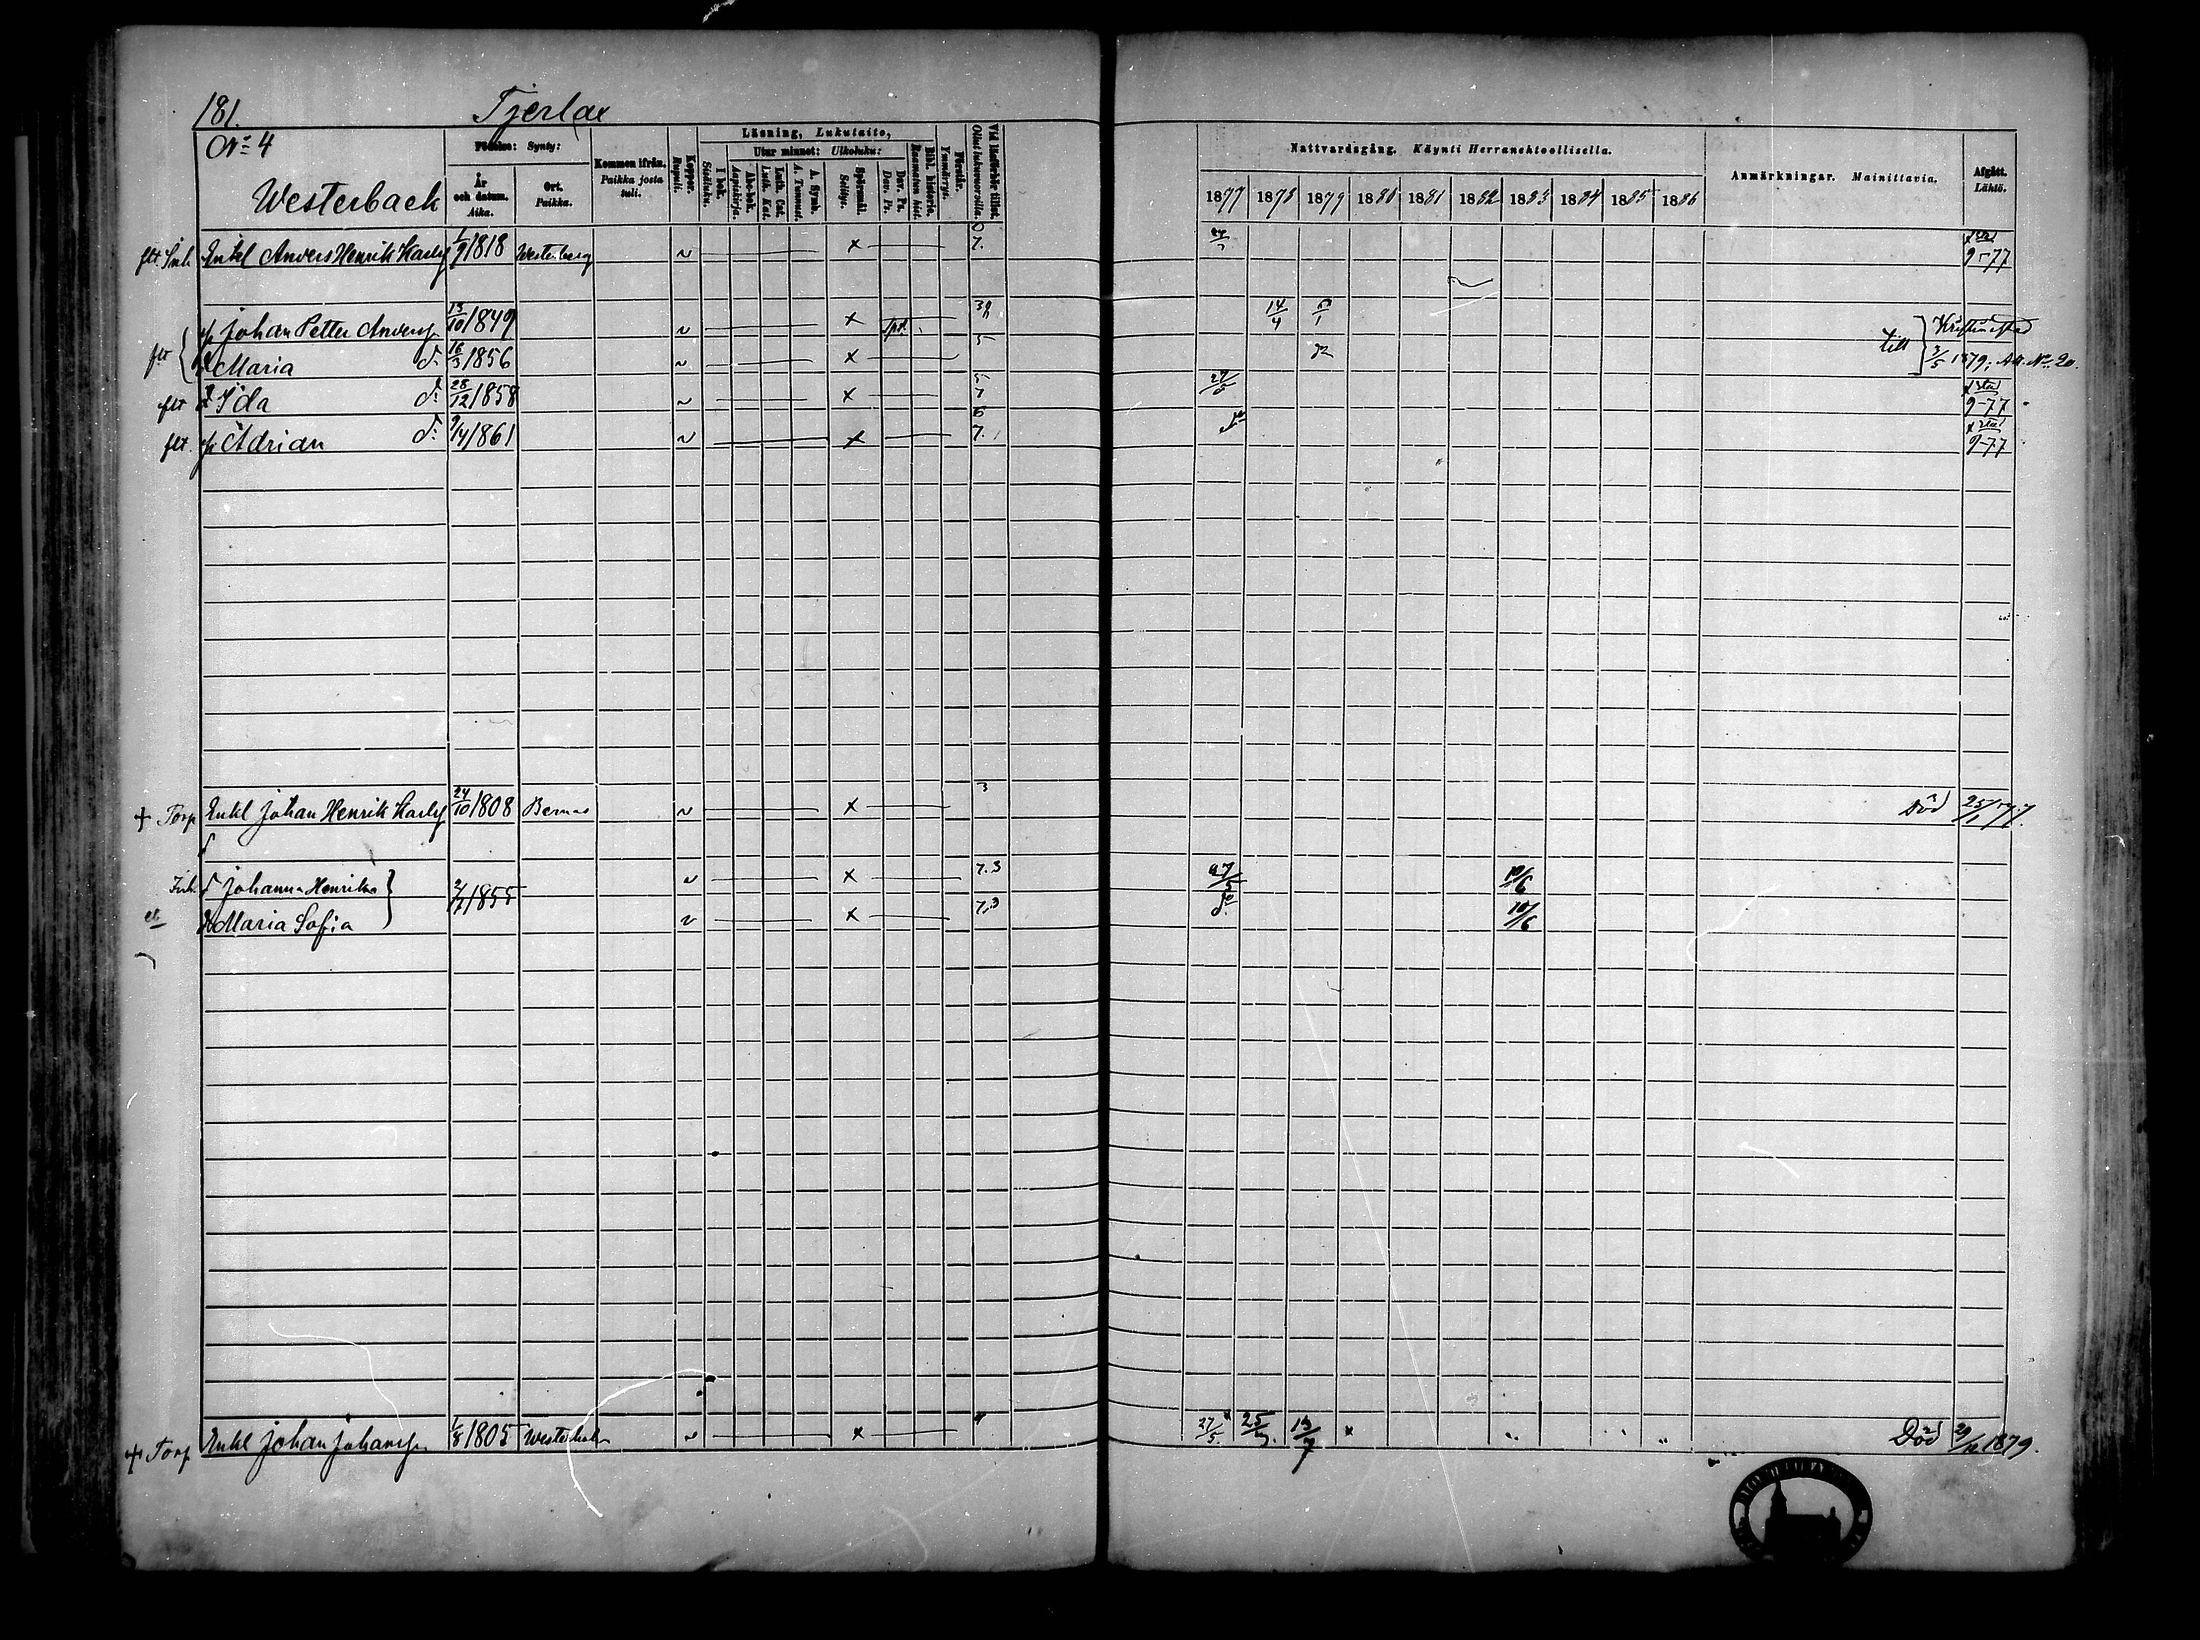 181. Tjerlax
No 4
Westerback
Födelse: Synty:
År och datum. Aika.
Ort. Paikka.
Kommen ifrån. Paikka josta tuli.
Koppor. Rupuli.
Läsning, Lukutaito,
I bok. Sisäluku.
Utur minnet: Ulkoluku:
Abc-bok. Aapiskirja.
Luth. Kat. Luth. Cat.
A. Symb. A. Tunnust.
Spörsmål. Selitys.
Dav. Ps. Dav. Ps.
Bibl. historie. Raamatun hist.
Förstår. Ymmärrys.
Vid läsförhör tillst. Ollut lukuvuorolla.
Nattvardsgång. Käynti Herranehtoollisella.
1877 1878 1879 1880 1881 1882 1883 1884 1885 1886
Anmärkningar. Mainittavia.
Afgått. Lähtö.
flt Inh. Enkl Anders Henrik 1/9 1818 Westerberg 7. 9-77
Johan Petter Anders 13/10 1849 14/4 Kristinestad
flt Maria d:o 16/3 1856 5 till 3/5 1879; Att. No 20.
flt Ida d:o 28/12 1858 5 7 27/5 9-77
flt. Adrian d:o 9/4 1861 6 7. 9-77
+ Torp Enkl Johan Henrik 24/10 1808 Bernas 3 Död 25/1 77.
Inh. Johanna Henrika 1855 7.3 27/5 10/6
Maria Sofia 7.3 do 10/6
+ Torp Enkl Johan Johanss. 1/8 1805 27/5 25/ Död 29/12 1879.